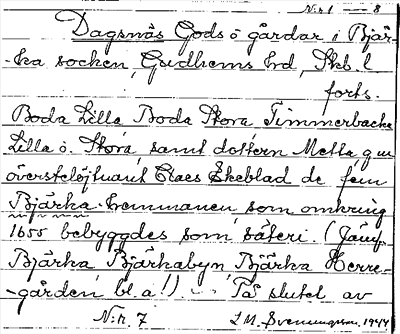 Nr 1 — 8
Dagsnäs Gods o gårdar i Bjär-
-ka socken, Gudhems hrd, Skb. l
forts.
Boda Lilla Boda Stora Timmerbacka
Lilla o. Stora, samt dottern Metta, gm
överstelöjtnant Claes Ekeblad de fem
Bjärka-hemmanen som omkring
1600 bebyggdes som säteri. (Jämf.
Bjärka Bjärkabyn Bjärka Herre-
-gården bl.a!) — På slutet av
N:r. 7 L.M. Svenungsson. 1944